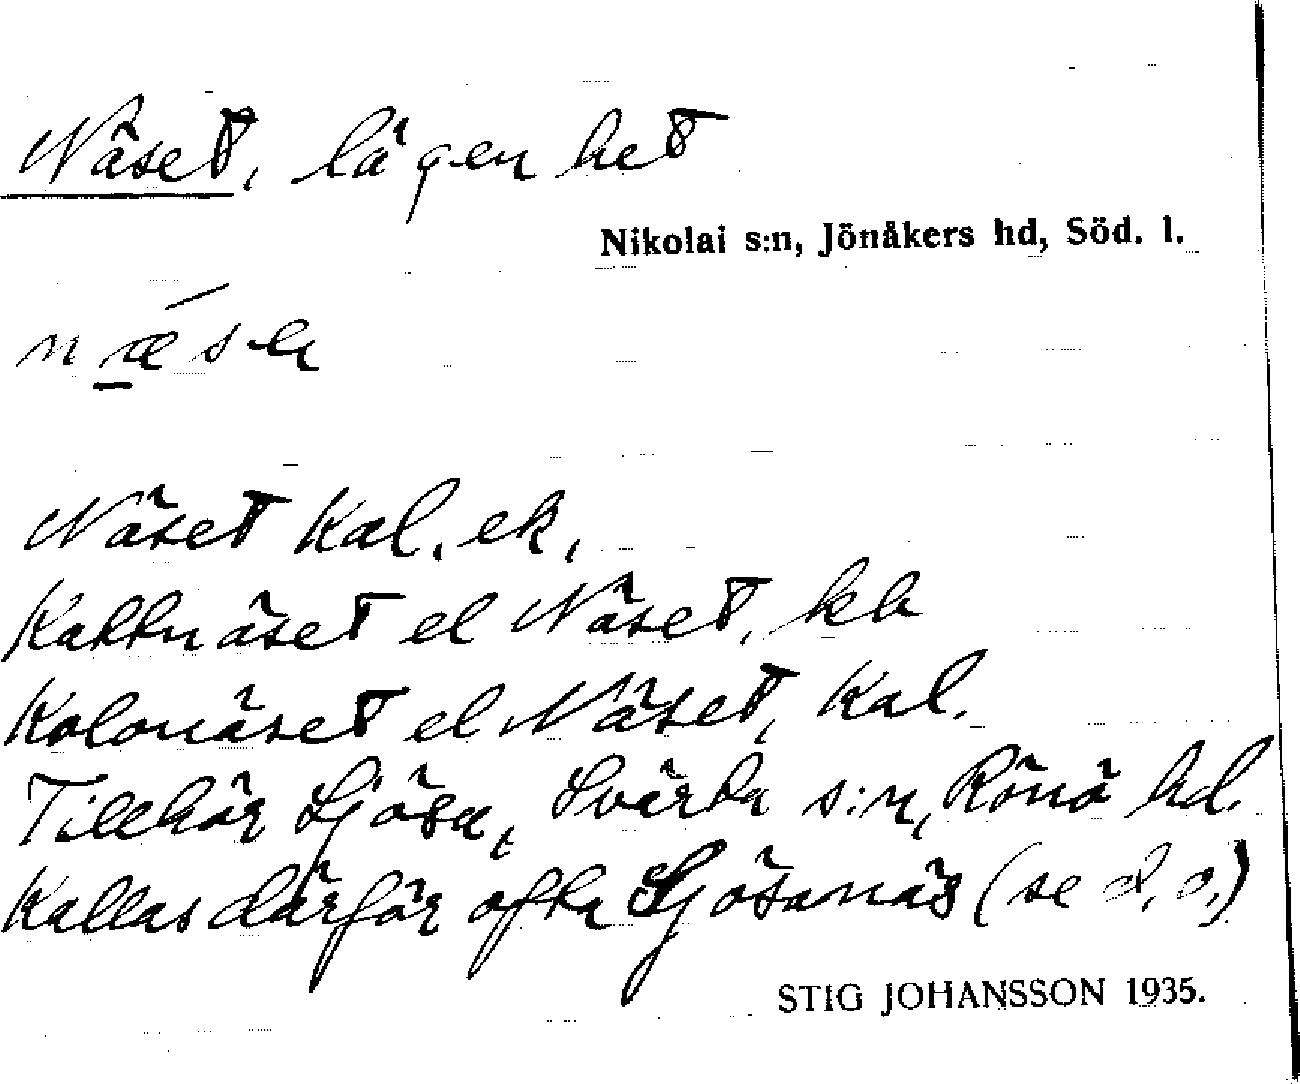 Näset, lägenhet
Nikolai s:n, Jönåkers hd, Söd. l.
Näset Kal. ek,
Kattnäset el Näset, kb
Kolonäset el Näset, Kal.
Tillhör Sjösa, Svärta s:n, Rönö hd.
Kallas därför ofta Sjösanäs (se d. o.)
STIG JOHANSSON 1935.